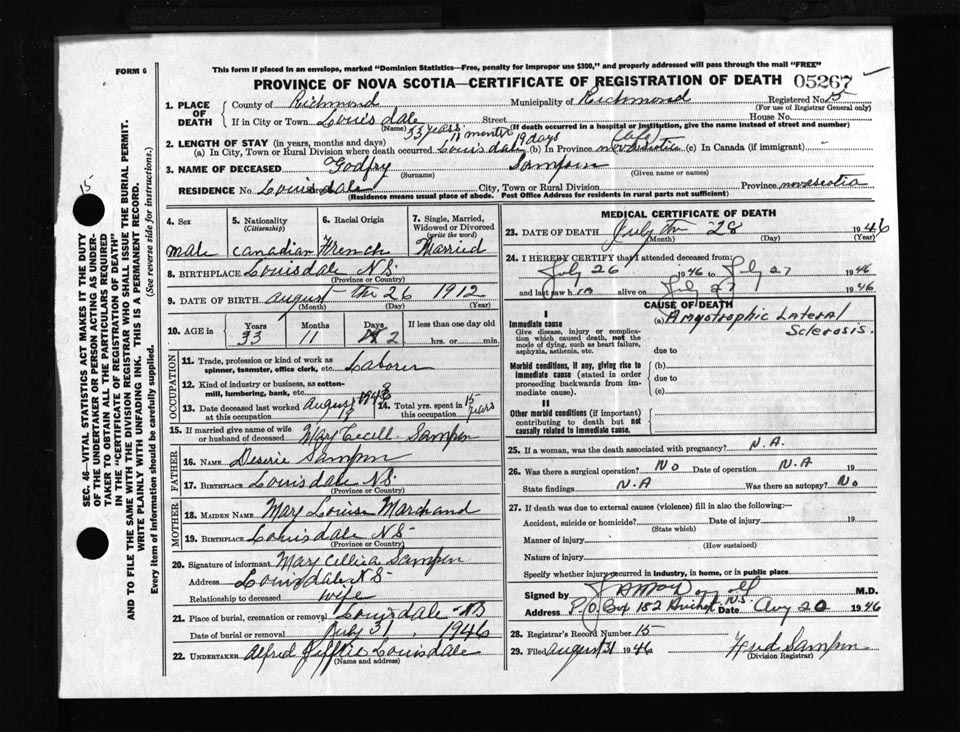 FORM 6
This form if placed in an envelope, marked "Dominion Statistics—Free, penalty for improper use $300," and properly addressed will pass through the mail "FREE"
PROVINCE OF NOVA SCOTIA—CERTIFICATE OF REGISTRATION OF DEATH 05267
1. PLACE OF DEATH
County of Richmond Municipality of Richmond Registered No. 15
(For use of Registrar General only)
If in City or Town Louisdale Street House No.
(Name) (If death occurred in a hospital or institution, give the name instead of street and number)
33 years 11 months 19 days Life
2. LENGTH OF STAY (in years, months and days)
(a) In City, Town or Rural Division where death occurred Louisdale (b) In Province nova scotia (c) In Canada (if immigrant)
3. NAME OF DECEASED Godfry Sampson
(Surname) (Given name or names)
RESIDENCE No. Louisdale City, Town or Rural Division Province nova scotia
(Residence means usual place of abode. Post Office Address for residents in rural parts not sufficient)
15
SEC. 46—VITAL STATISTICS ACT MAKES IT THE DUTY
OF THE UNDERTAKER OR PERSON ACTING AS UNDER-
TAKER TO OBTAIN ALL THE PARTICULARS REQUIRED
IN THE "CERTIFICATE OF REGISTRATION OF DEATH"
AND TO FILE THE SAME WITH THE DIVISION REGISTRAR WHO SHALL ISSUE THE BURIAL PERMIT.
WRITE PLAINLY WITH UNFADING INK. THIS IS A PERMANENT RECORD.
Every item of Information should be carefully supplied. (See reverse side for instructions.)
4. Sex
male
5. Nationality
(Citizenship)
Canadian
6. Racial Origin
French
7. Single, Married,
Widowed or Divorced
(write the word)
Married
8. BIRTHPLACE Louisdale N.S.
(Province or Country)
9. DATE OF BIRTH August the 26 1912
(Month) (Day) (Year)
10. AGE in Years Months Days If less than one day old
33 11 2 hrs. or min.
OCCUPATION
11. Trade, profession or kind of work as
spinner, teamster, office clerk, etc. Laborer
12. Kind of industry or business, as cotton-
mill, lumbering, bank, etc.
13. Date deceased last worked
at this occupation August
14. Total yrs. spent in
this occupation 15 years
15. If married give name of wife
or husband of deceased Mary Cecill Sampson
FATHER
16. NAME Deserie Sampson
17. BIRTHPLACE Louisdale N.S.
(Province or Country)
MOTHER
18. MAIDEN NAME Mary Louise Marchand
19. BIRTHPLACE Louisdale N.S
(Province or Country)
20. Signature of informant Mary Sampson
Address Louisdale N.S.
Relationship to deceased wife
21. Place of burial, cremation or removal Louisdale N.S
Date of burial or removal July 31, 1946
22. UNDERTAKER Alfred Louisdale
(Name and address)
MEDICAL CERTIFICATE OF DEATH
23. DATE OF DEATH July the 28 1946
(Month) (Day) (Year)
24. I HEREBY CERTIFY that I attended deceased from:
July 26 1946 to July 27 1946
and last saw him alive on July 27 1946
CAUSE OF DEATH
I
Immediate cause
Give disease, injury or complica-
tion which caused death, not the
mode of dying, such as heart failure,
asphyxia, asthenia, etc.
(a) Amyotrophic Lateral
Sclerosis.
due to
Morbid conditions, if any, giving rise to
immediate cause (stated in order
proceeding backwards from im-
mediate cause).
(b)
due to
(c)
II
Other morbid conditions (if important)
contributing to death but not
causally related to immediate cause.
25. If a woman, was the death associated with pregnancy? N.A.
26. Was there a surgical operation? No Date of operation N.A 19
State findings N.A Was there an autopsy? No
27. If death was due to external causes (violence) fill in also the following:—
Accident, suicide or homicide? Date of injury 19
(State which)
Manner of injury
(How sustained)
Nature of injury
Specify whether injury occurred in industry, in home, or in public place
Signed by M.D.
Address P.O. Box 182 Arichat NS Date Aug 20 1946
28. Registrar's Record Number 15
29. Filed August 31 1946 Sampson
(Division Registrar)